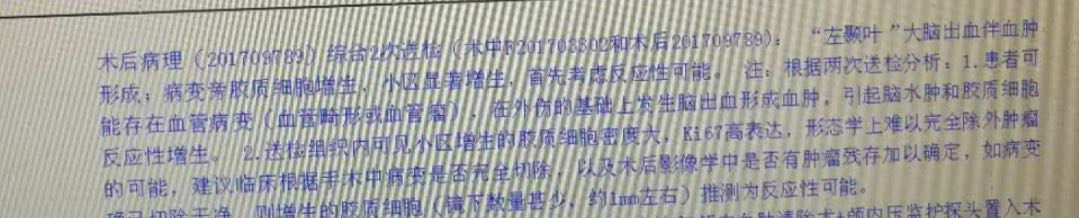 术后病理（201709789）综合2次送检（术中F201703302和术后201709789）：“左颞叶”大脑出血伴血肿
形成；病变旁胶质细胞增生，小区显著增生，首先考虑反应性可能。 注：根据两次送检分析：1.患者可
能存在血管病变（血管畸形或血管瘤），在外伤的基础上发生脑出血形成血肿，引起脑水肿和胶质细胞
反应性增生。 2.送检组织内可见小区增生的胶质细胞密度大，Ki67高表达，形态学上难以完全除外肿瘤
的可能，建议临床根据手术中病变是否完全切除，以及术后影像学中是否有肿瘤残存加以确定，如病变
确已切除干净，则增生的胶质细胞（镜下数量甚少，约1mm左右）推测为反应性可能。
颅内压监护探头置入术